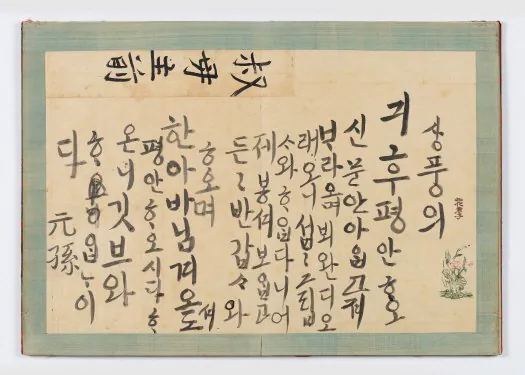 叔母主前
상풍의
긔후 평안ᄒᆞ오
신 문안 아ᄋᆞᆸ고져
ᄇᆞ라오며 뵈완디 오
래오니 섭〻 그립
ᄉᆞ와 ᄒᆞᄋᆞᆸ다니 어
제 봉셔 보ᄋᆞᆸ고
든〻 반갑ᄉᆞ와
ᄒᆞ오며
한아바님겨오셔
평안ᄒᆞ오시다 ᄒᆞ
온니 깃브와
ᄒᆞᄋᆞᆸᄂᆞ이
다
元孫